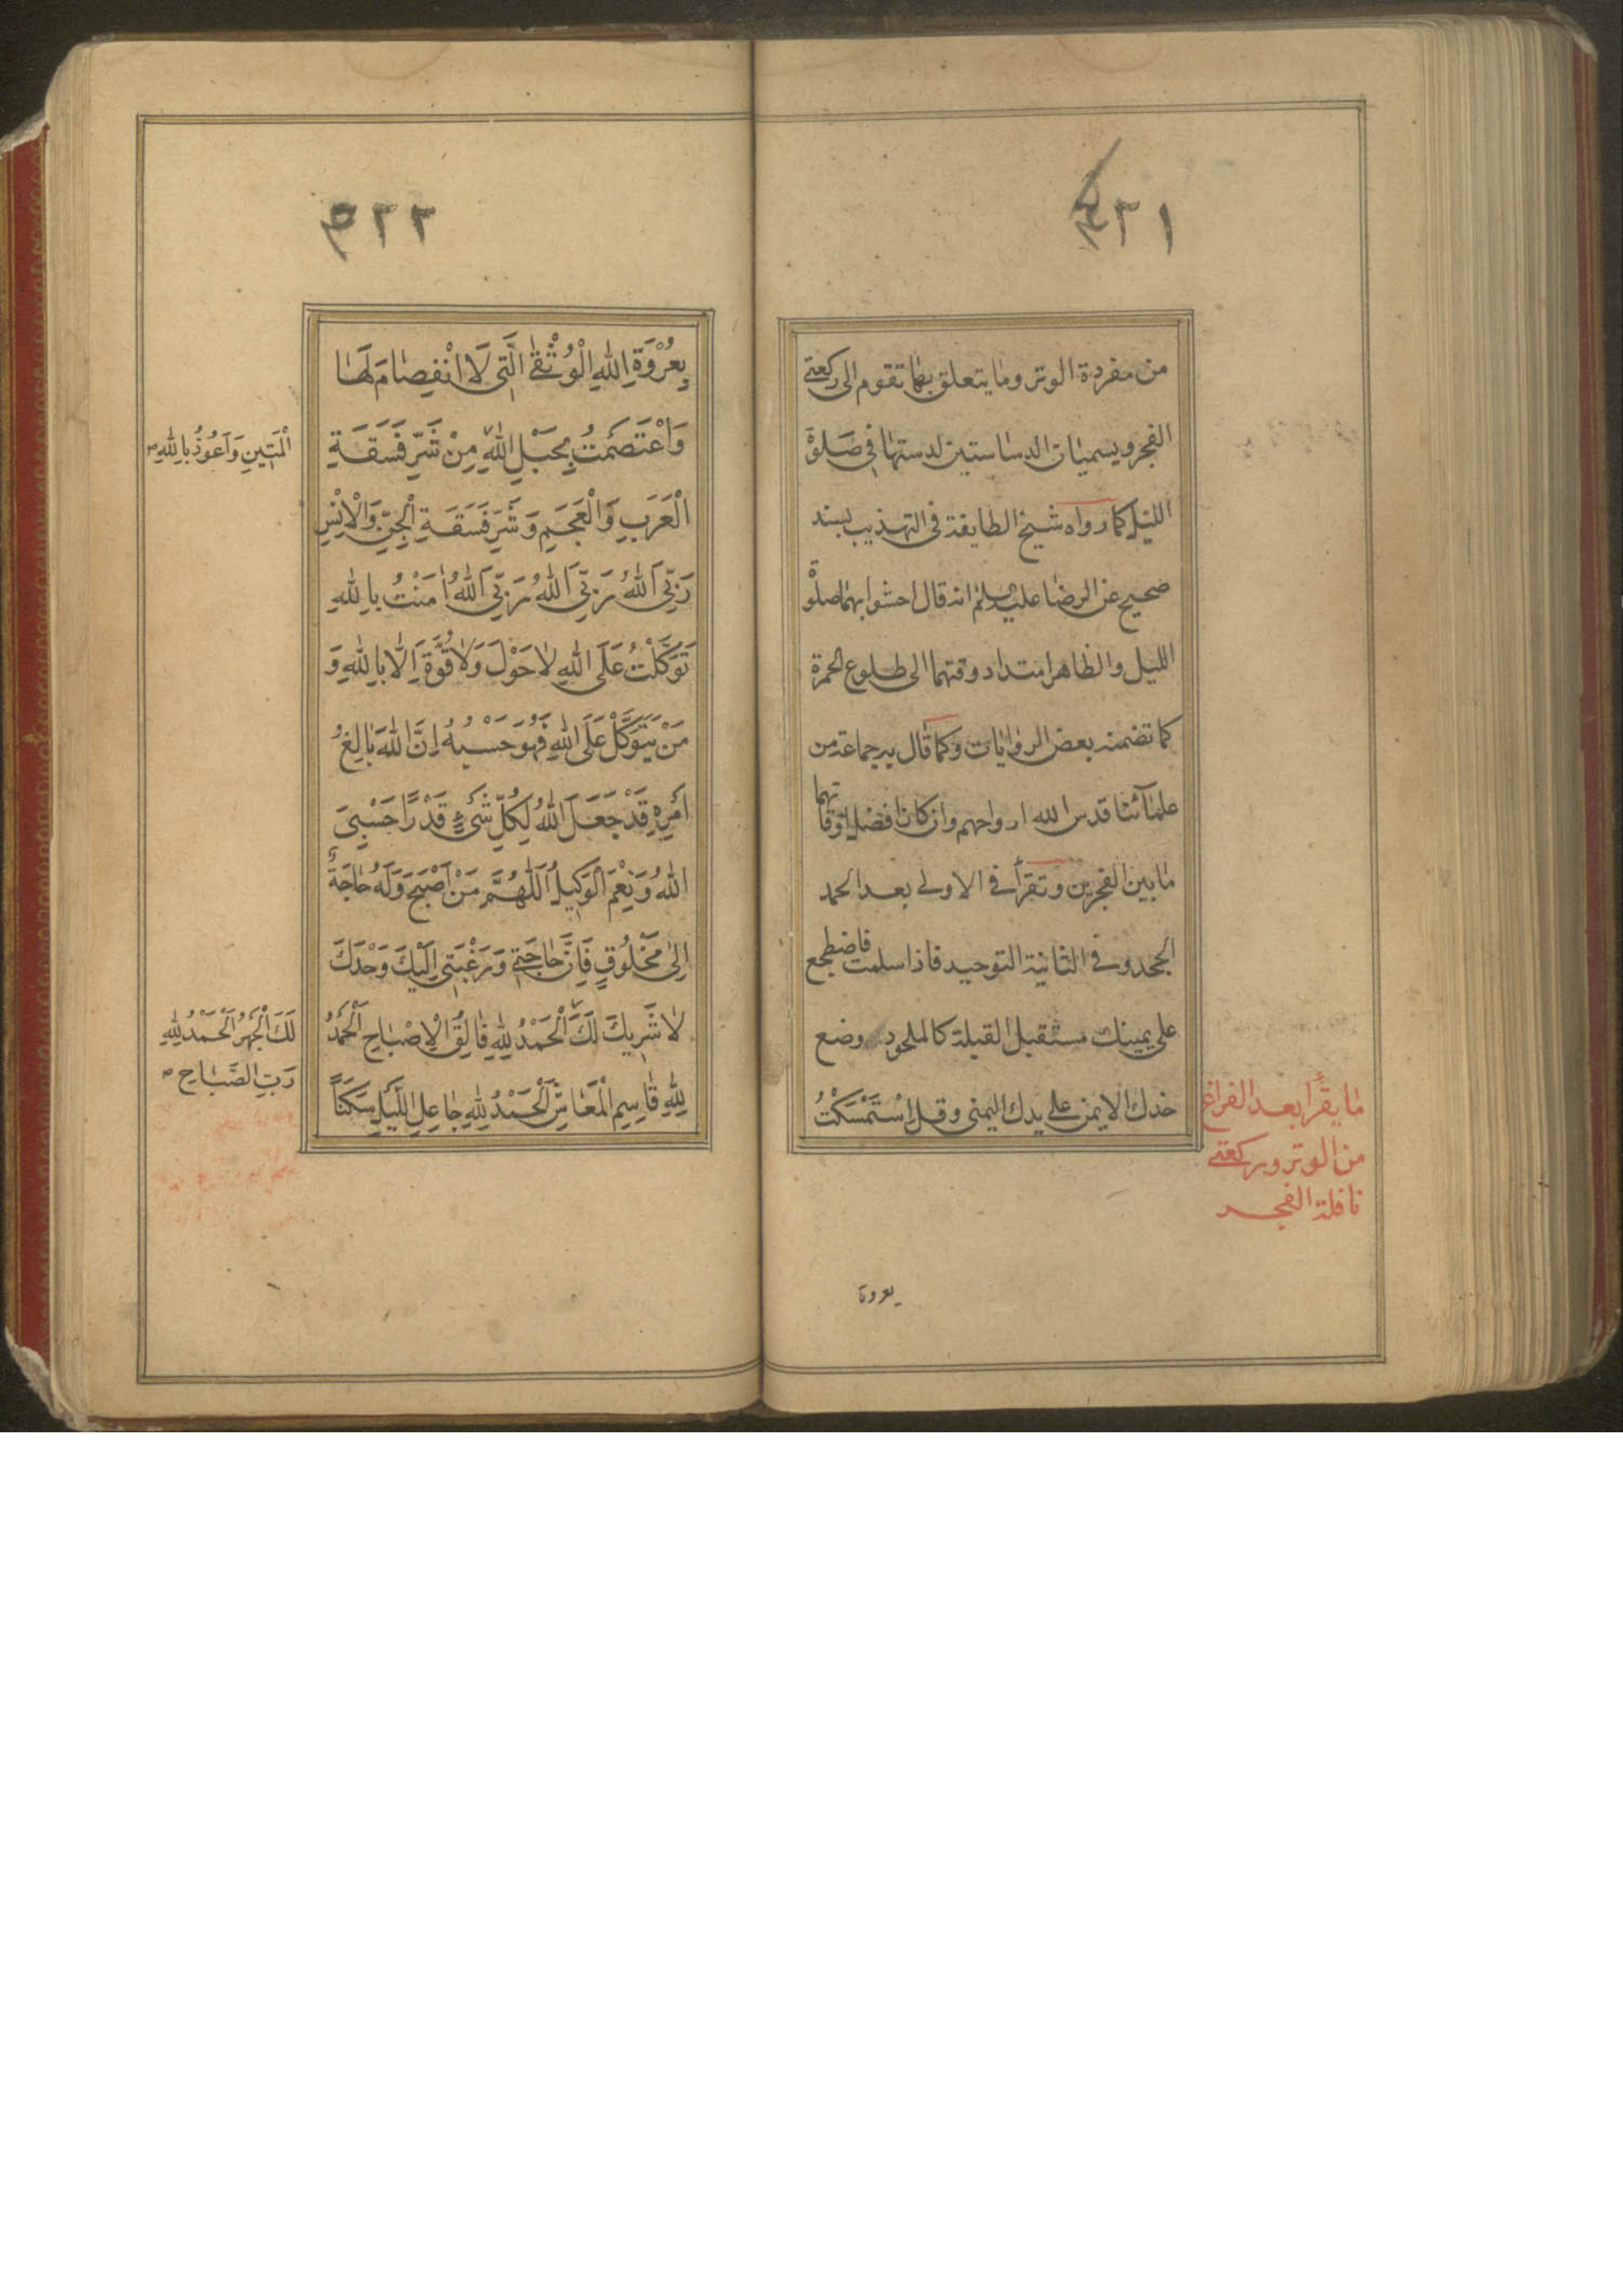 من مفردة الوتر وما يتعلق بها تقوم الى ركعتي
الفجر ويسميان الدساستين لدستهما في صلوة
الليل كما رواه شيخ الطايفة في التهذيب بسند
صحيح عن الرضا عليه السلم انه قال احشوا بهما صلوة
الليل والظاهر امتداد وقتهما الى طلوع الحمرة
كما تضمنه بعض الروايات وكما قال به جماعة من
علمائنا قدس الله ارواحهم وان كان افضل اوقاتهما
ما بين الفجرين وتقرأ في الاولى بعد الحمد
الجحد وفي الثانية التوحيد فاذا سلمت فاضطجع
على يمينك مستقبل القبلة كالملحود وضع
خدك الايمن على يدك اليمنى وقل اِسْتَمْسَكْتُ
ما يقرأ بعد الفراغ
من الوتر وركعتي
نافلة الفجر
بعروة
٢٢
بِعُرْوَةِ اللهِ الْوُثْقٰى الَّتِى لَا انْفِصَامَ لَهَا
وَاعْتَصَمْتُ بِحَبْلِ اللهِ مِنْ شَرِّ فَسَقَةِ
الْمَتِينِ وَاَعُوذُ بِاللهِ صح
الْعَرَبِ وَالْعَجَمِ وَشَرِّ فَسَقَةِ الْجِنِّ وَالْاِنْسِ
رَبِّىَ اللهُ رَبِّىَ اللهُ رَبِّىَ اللهُ اٰمَنْتُ بِاللهِ
تَوَكَّلْتُ عَلَى اللهِ لَا حَوْلَ وَلَا قُوَّةَ اِلَّا بِاللهِ وَ
مَنْ يَتَوَكَّلْ عَلَى اللهِ فَهُوَ حَسْبُهُ اِنَّ اللهَ بَالِغُ
اَمْرِهِ قَدْ جَعَلَ اللهُ لِكُلِّ شَىْءٍ قَدْرًا حَسْبِىَ
اللهُ وَنِعْمَ الْوَكِيلُ اَللّٰهُمَّ مَنْ اَصْبَحَ وَلَهُ حَاجَةٌ
اِلٰى مَخْلُوقٍ فَاِنَّ حَاجَتِى وَرَغْبَتِى اِلَيْكَ وَحْدَكَ
لَا شَرِيكَ لَكَ اَلْحَمْدُ لِلّٰهِ فَالِقِ الْاِصْبَاحِ اَلْحَمْدُ
لِلّٰهِ قَاسِمِ الْمَعَاشِ اَلْحَمْدُ لِلّٰهِ جَاعِلِ اللَّيْلِ سَكَنًا
اَلْحَمْدُ لِلّٰهِ
رَبِّ الصَّبَاحِ